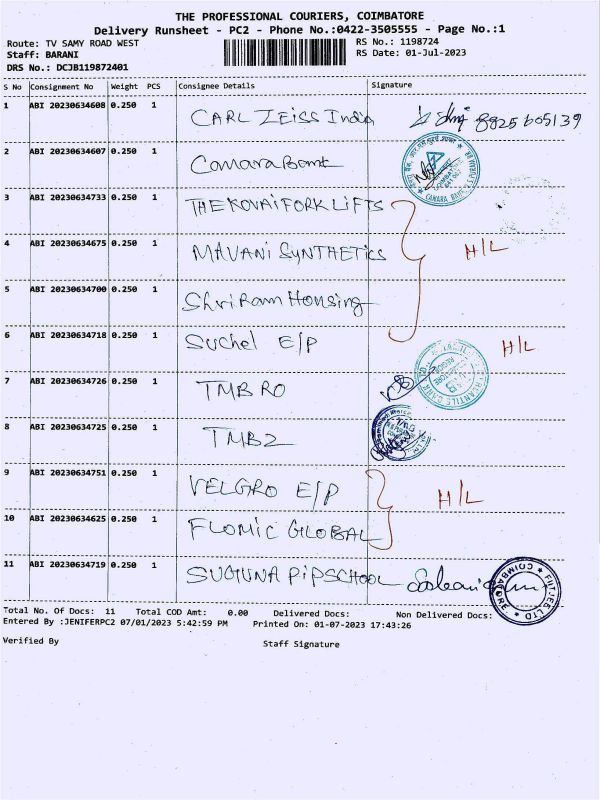 THE PROFESSIONAL COURIERS, COIMBATORE
Delivery Runsheet - PC2 - Phone No.:0422-3505555 - Page No.:1
Route: TV SAMY ROAD WEST RS No.: 1198724
Staff: BARANI RS Date: 01-Jul-2023
DRS No.: DCJB119872401
S No Consignment No Weight PCS Consignee Details Signature
1 ABI 20230634608 0.250 1 CARL ZEISS India 8825605139
2 ABI 20230634607 0.250 1 Canara Bank
CANARA BANK
3 ABI 20230634733 0.250 1 THE KOVAI FORK LIFTS
4 ABI 20230634675 0.250 1 MAVANI SYNTHETICS H/L
5 ABI 20230634700 0.250 1 Shri Ram Housing
6 ABI 20230634718 0.250 1 Suchel E/P H/L
7 ABI 20230634726 0.250 1 TMB RO
8 ABI 20230634725 0.250 1 TMB2
9 ABI 20230634751 0.250 1 VELGRO E/P H/L
10 ABI 20230634625 0.250 1 FLOMIC GLOBAL
11 ABI 20230634719 0.250 1 SUGUNA PIPSCHOOL
FIITJEE LTD * COIMBATORE *
Total No. Of Docs: 11 Total COD Amt: 0.00 Delivered Docs: Non Delivered Docs:
Entered By :JENIFERPC2 07/01/2023 5:42:59 PM Printed On: 01-07-2023 17:43:26
Verified By Staff Signature